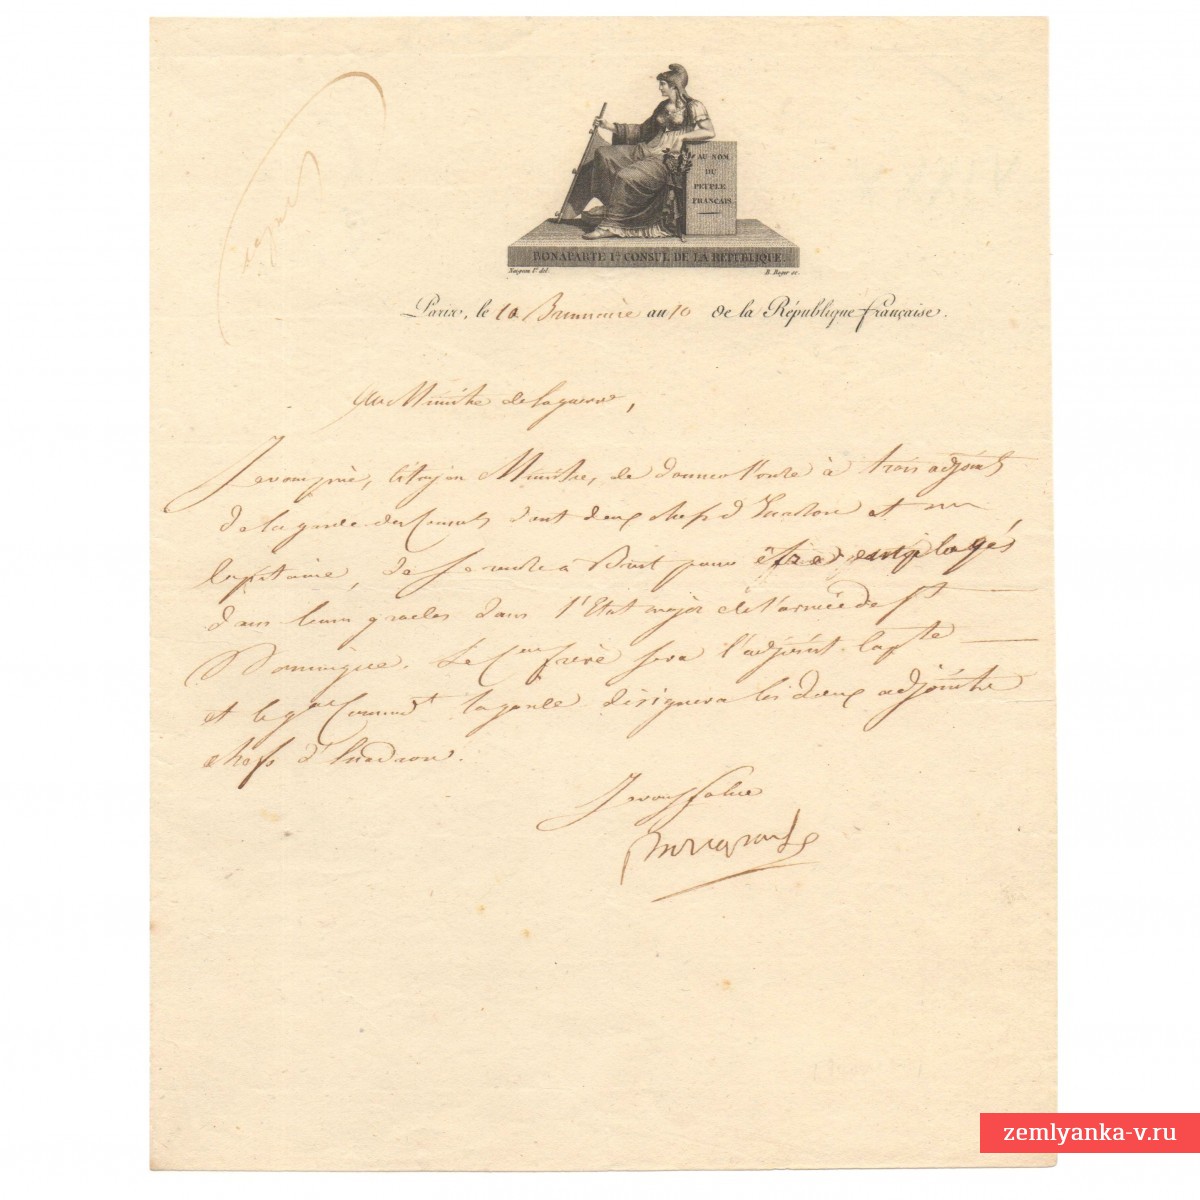 AU NOM
DU
PEUPLE
FRANÇAIS.
BONAPARTE 1er CONSUL DE LA REPUBLIQUE.
Naigeon Ve. del. B. Roger sc.
Paris, le 10 Brumaire an 10 de la République française.
Au Ministre de la guerre,
Je vous prie, Citoyen Ministre, de donner l'ordre à trois adjoints
de la garde des Consuls dont deux chefs d'Escadron et un
Capitaine, de se rendre à Brest pour être employés
dans leurs grades dans l'Etat major de l'armée de St
Domingue. Le Cen frere sera l'adjoint Capte
et le gal Commandt la garde désignera les deux adjoints
chefs d'Escadron.
Je vous salue
Bonaparte
zemlyanka-v.ru